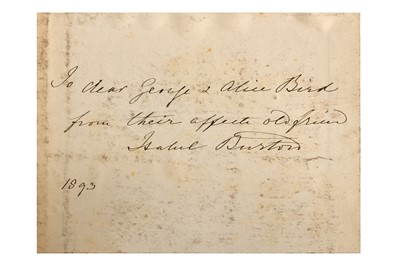 To dear George & Alice Bird
from their affecte old friend
Isabel Burton
1893